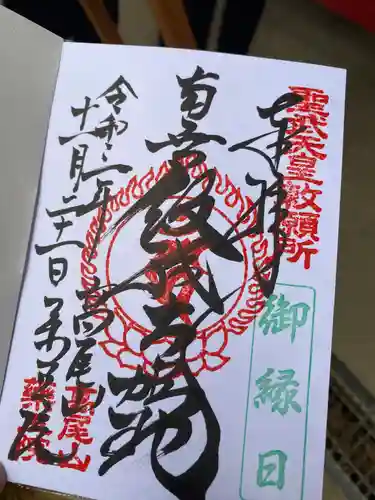 聖武天皇勅願所
奉拝
御縁日
南無飯縄大権現
高尾山
薬王院
令和二年
十一月二十一日